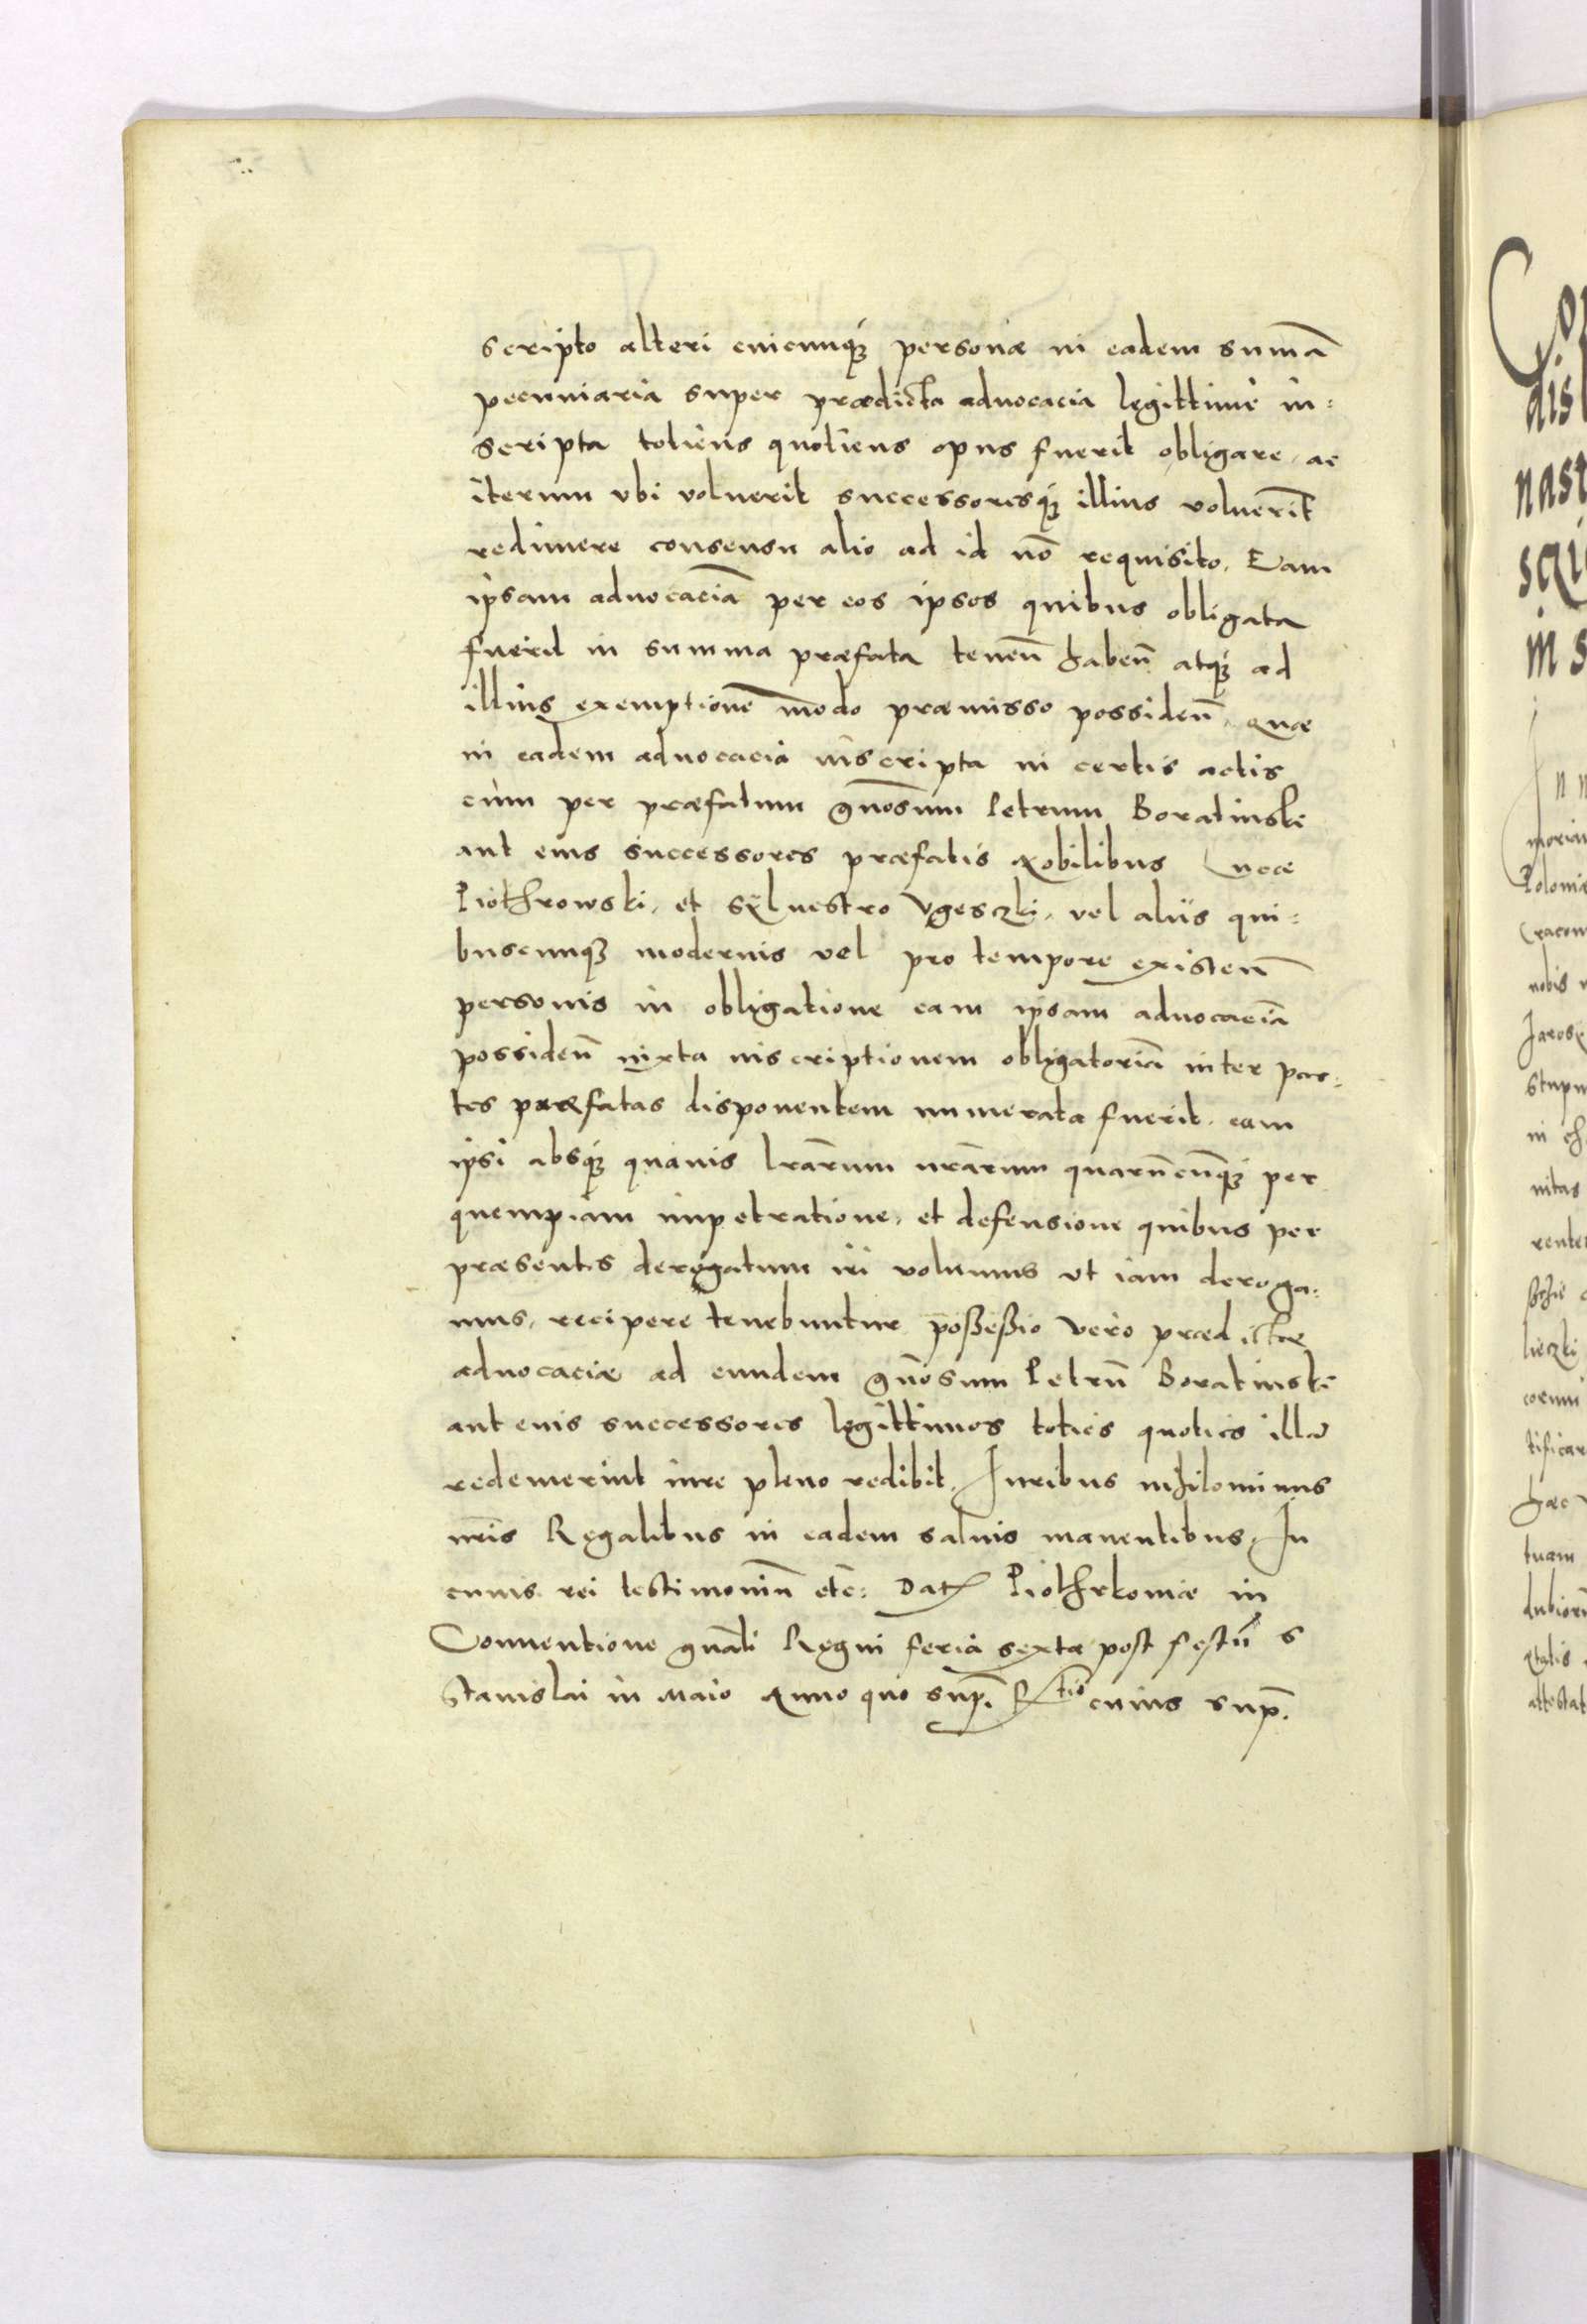 scripto alteri cuicunq; personæ in eadem sum̄a
pecuniaria super prædicta aduocacia legittime in=
scripta totiens quotiens opus fuerit obligare, ac
iterum vbi voluerit successoresq; illius voluerīt
redimere consensu alio ad id nō requisito. Eam
ipsam aduocaciā per eos ipsos quibus obligata
fuerit in summa præfata tenen̄ haben̄ atq; ad
illius exemptionē modo præmisso possiden̄. quæ
in eadem aduocacia inscripta in certis actis
cum per præfatum gn̄osum Petrum Boratinski
aut eius successores præfatis Nobilibus Lucæ
Piothrowski, et Sÿluestro Vgeszki, vel aliis qui=
buscunq; modernis vel pro tempore existen̄
personis in obligatione eam ipsam aduocaciā
possiden̄ iuxta inscriptionem obligatoriā inter par=
tes præfatas disponentem numerata fuerit. eam
ipsi absq; quauis lrārum nrārum quarūcūq; per
quempiam impetratione, et defensione quibus per
præsentes derogatum iri volumus vt iam deroga=
mus, recipere tenebuntur possessio vero prædictæ
aduocaciæ ad eundem gn̄osum Petrū Boratinski
aut eius successores legittimos toties quoties illā
redemerint iure pleno redibit. Iuribus nihilominus
nr̄is Regalibus in eadem saluis manentibus, In
cuius rei testimoniū etc̄: Dat Piothrkouiæ in
Conuentione gn̄ali Regni feria sexta post festū S
Stanislai in Maio Anno quo sup̄. Rtio cuius sup̄.